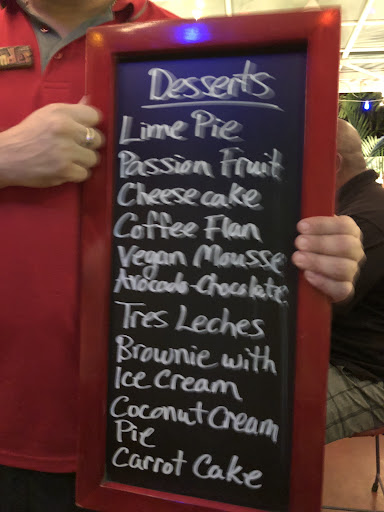 Desserts
Lime Pie
Passion Fruit
Cheesecake
Coffee Flan
Vegan Mousse
Avocado-Chocolate
Tres Leches
Brownie with
Ice Cream
Coconut Cream
Pie
Carrot Cake